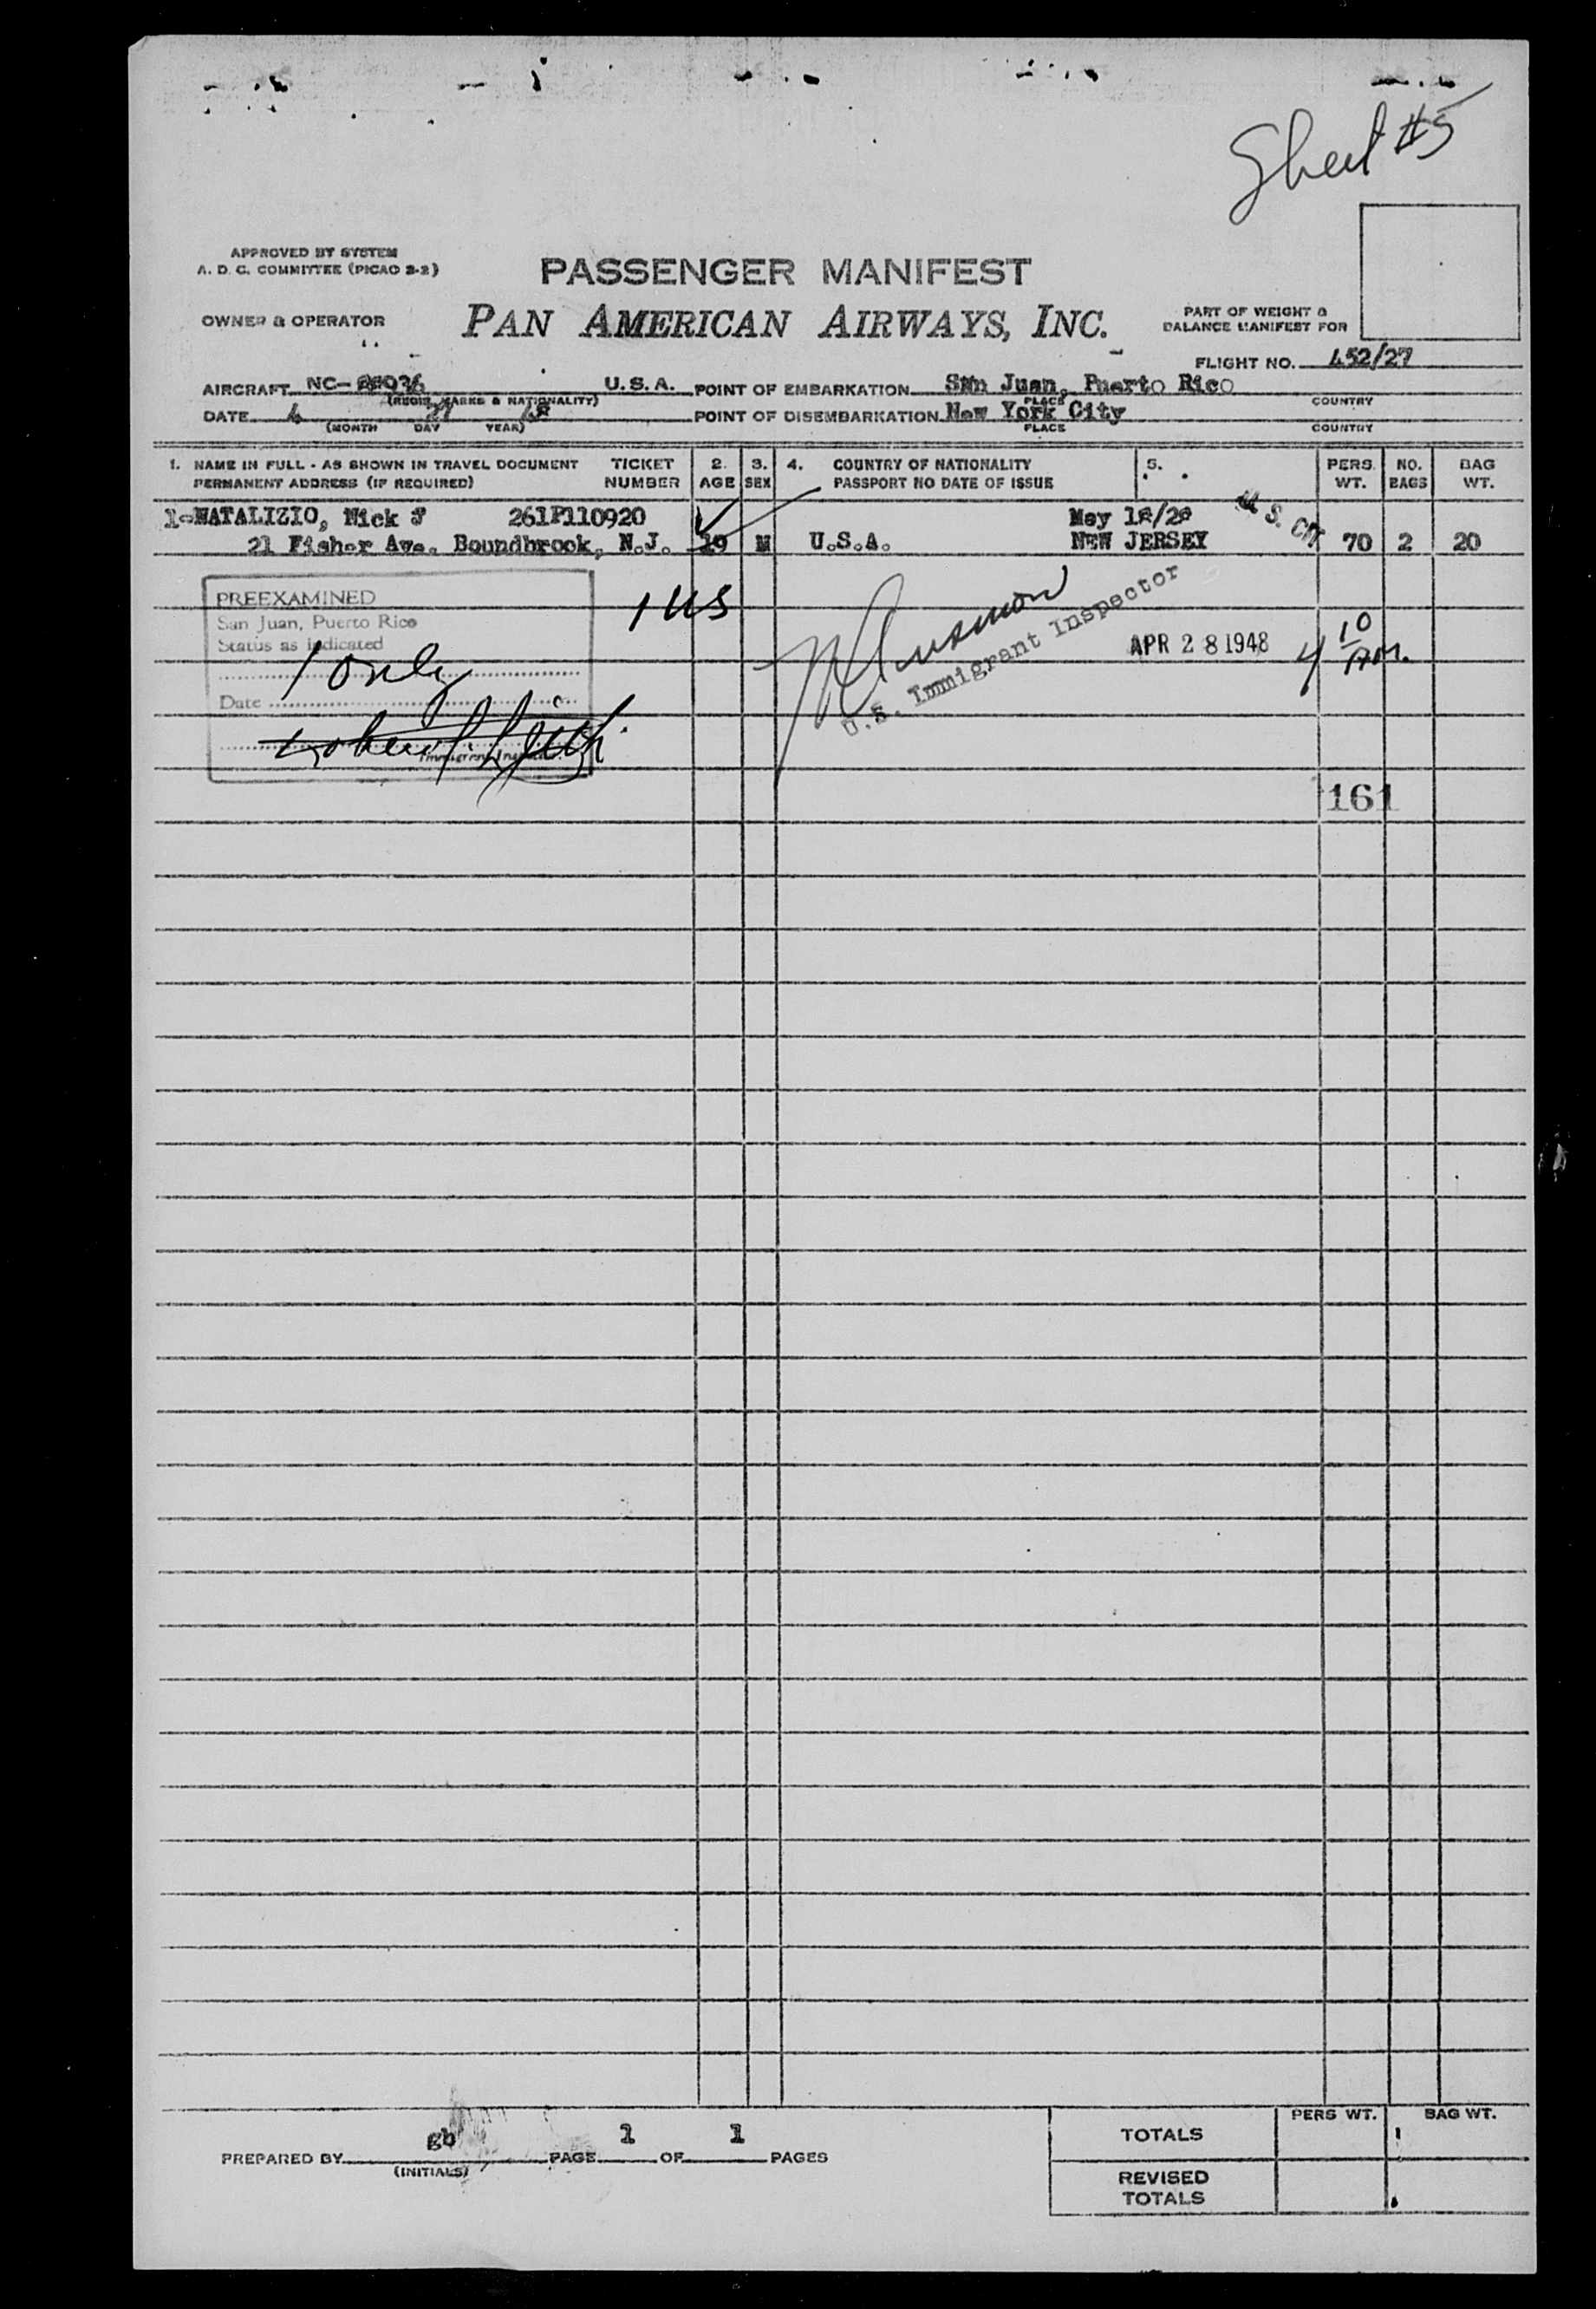 Sheet #5
APPROVED BY SYSTEM
A. D. C. COMMITTEE (PICAO 2-2)
PASSENGER MANIFEST
OWNER & OPERATOR
PAN AMERICAN AIRWAYS, INC.
PART OF WEIGHT &
BALANCE MANIFEST FOR
FLIGHT NO. 452/27
AIRCRAFT NC- U.S.A. POINT OF EMBARKATION San Juan, Puerto Rico
(REGIS. MARKS & NATIONALITY) PLACE COUNTRY
DATE 4 27 48 POINT OF DISEMBARKATION New York City
(MONTH DAY YEAR) PLACE COUNTRY
1. NAME IN FULL - AS SHOWN IN TRAVEL DOCUMENT TICKET 2. 3. 4. COUNTRY OF NATIONALITY 5. PERS. NO. BAG
PERMANENT ADDRESS (IF REQUIRED) NUMBER AGE SEX PASSPORT NO DATE OF ISSUE WT. BAGS WT.
1-NATALIZIO, Nick J 261P110920 May U. S. CIT
21 Fisher Ave. Boundbrook, N.J. 19 M U.S.A. NEW JERSEY 70 2 20
PREEXAMINED
San Juan, Puerto Rico
Status as indicated
1 only
Date
1 US
U.S. Immigrant Inspector
APR 28 1948
4 10 AM.
161
PREPARED BY gb PAGE 1 OF 1 PAGES
(INITIALS)
PERS WT. BAG WT.
TOTALS
REVISED
TOTALS